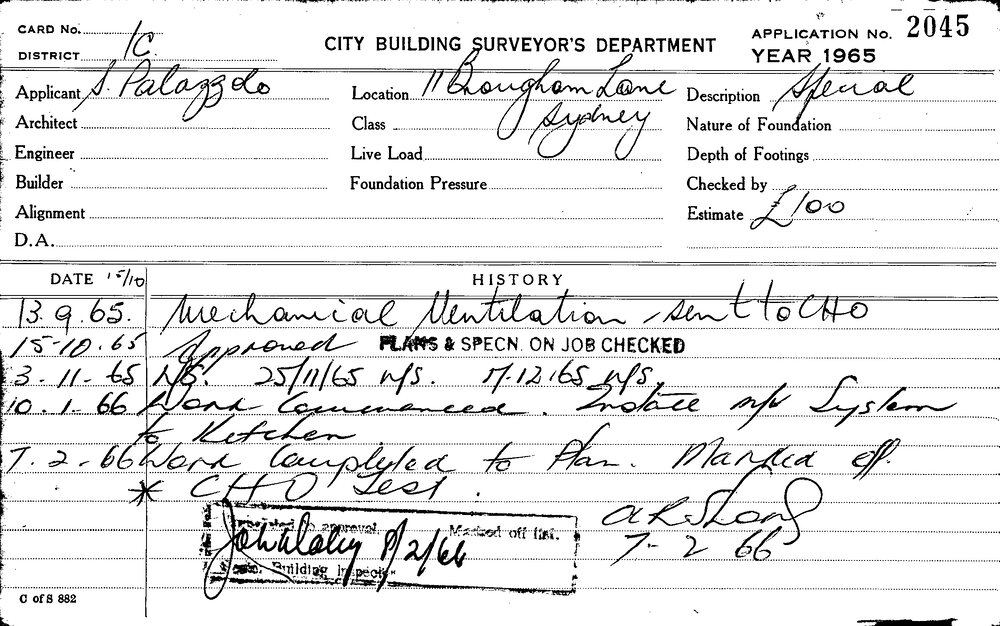 CARD No.
DISTRICT 1C.
CITY BUILDING SURVEYOR'S DEPARTMENT
APPLICATION No. 2045
YEAR 1965
Applicant S. Palazzolo
Location 11 Brougham Lane
Sydney
Description Special
Architect
Class
Nature of Foundation
Engineer
Live Load
Depth of Footings
Builder
Foundation Pressure
Checked by
Alignment
Estimate £100
D.A.
DATE 15/10
HISTORY
13.9.65. Mechanical Ventilation - sent to CHO
15-10.65 Approved PLANS & SPECN. ON JOB CHECKED
3-11-65 N/S. 25/11/65 n/s. 17.12.65 n/s.
10.1-66 Work Commenced. Install m/v System
to Kitchen
7.2-66 Work Completed to Plan. Marked off.
* CHO Test.
7-2 66
approval. Marked off list.
8/2/66
Building Inspector
C of S 882